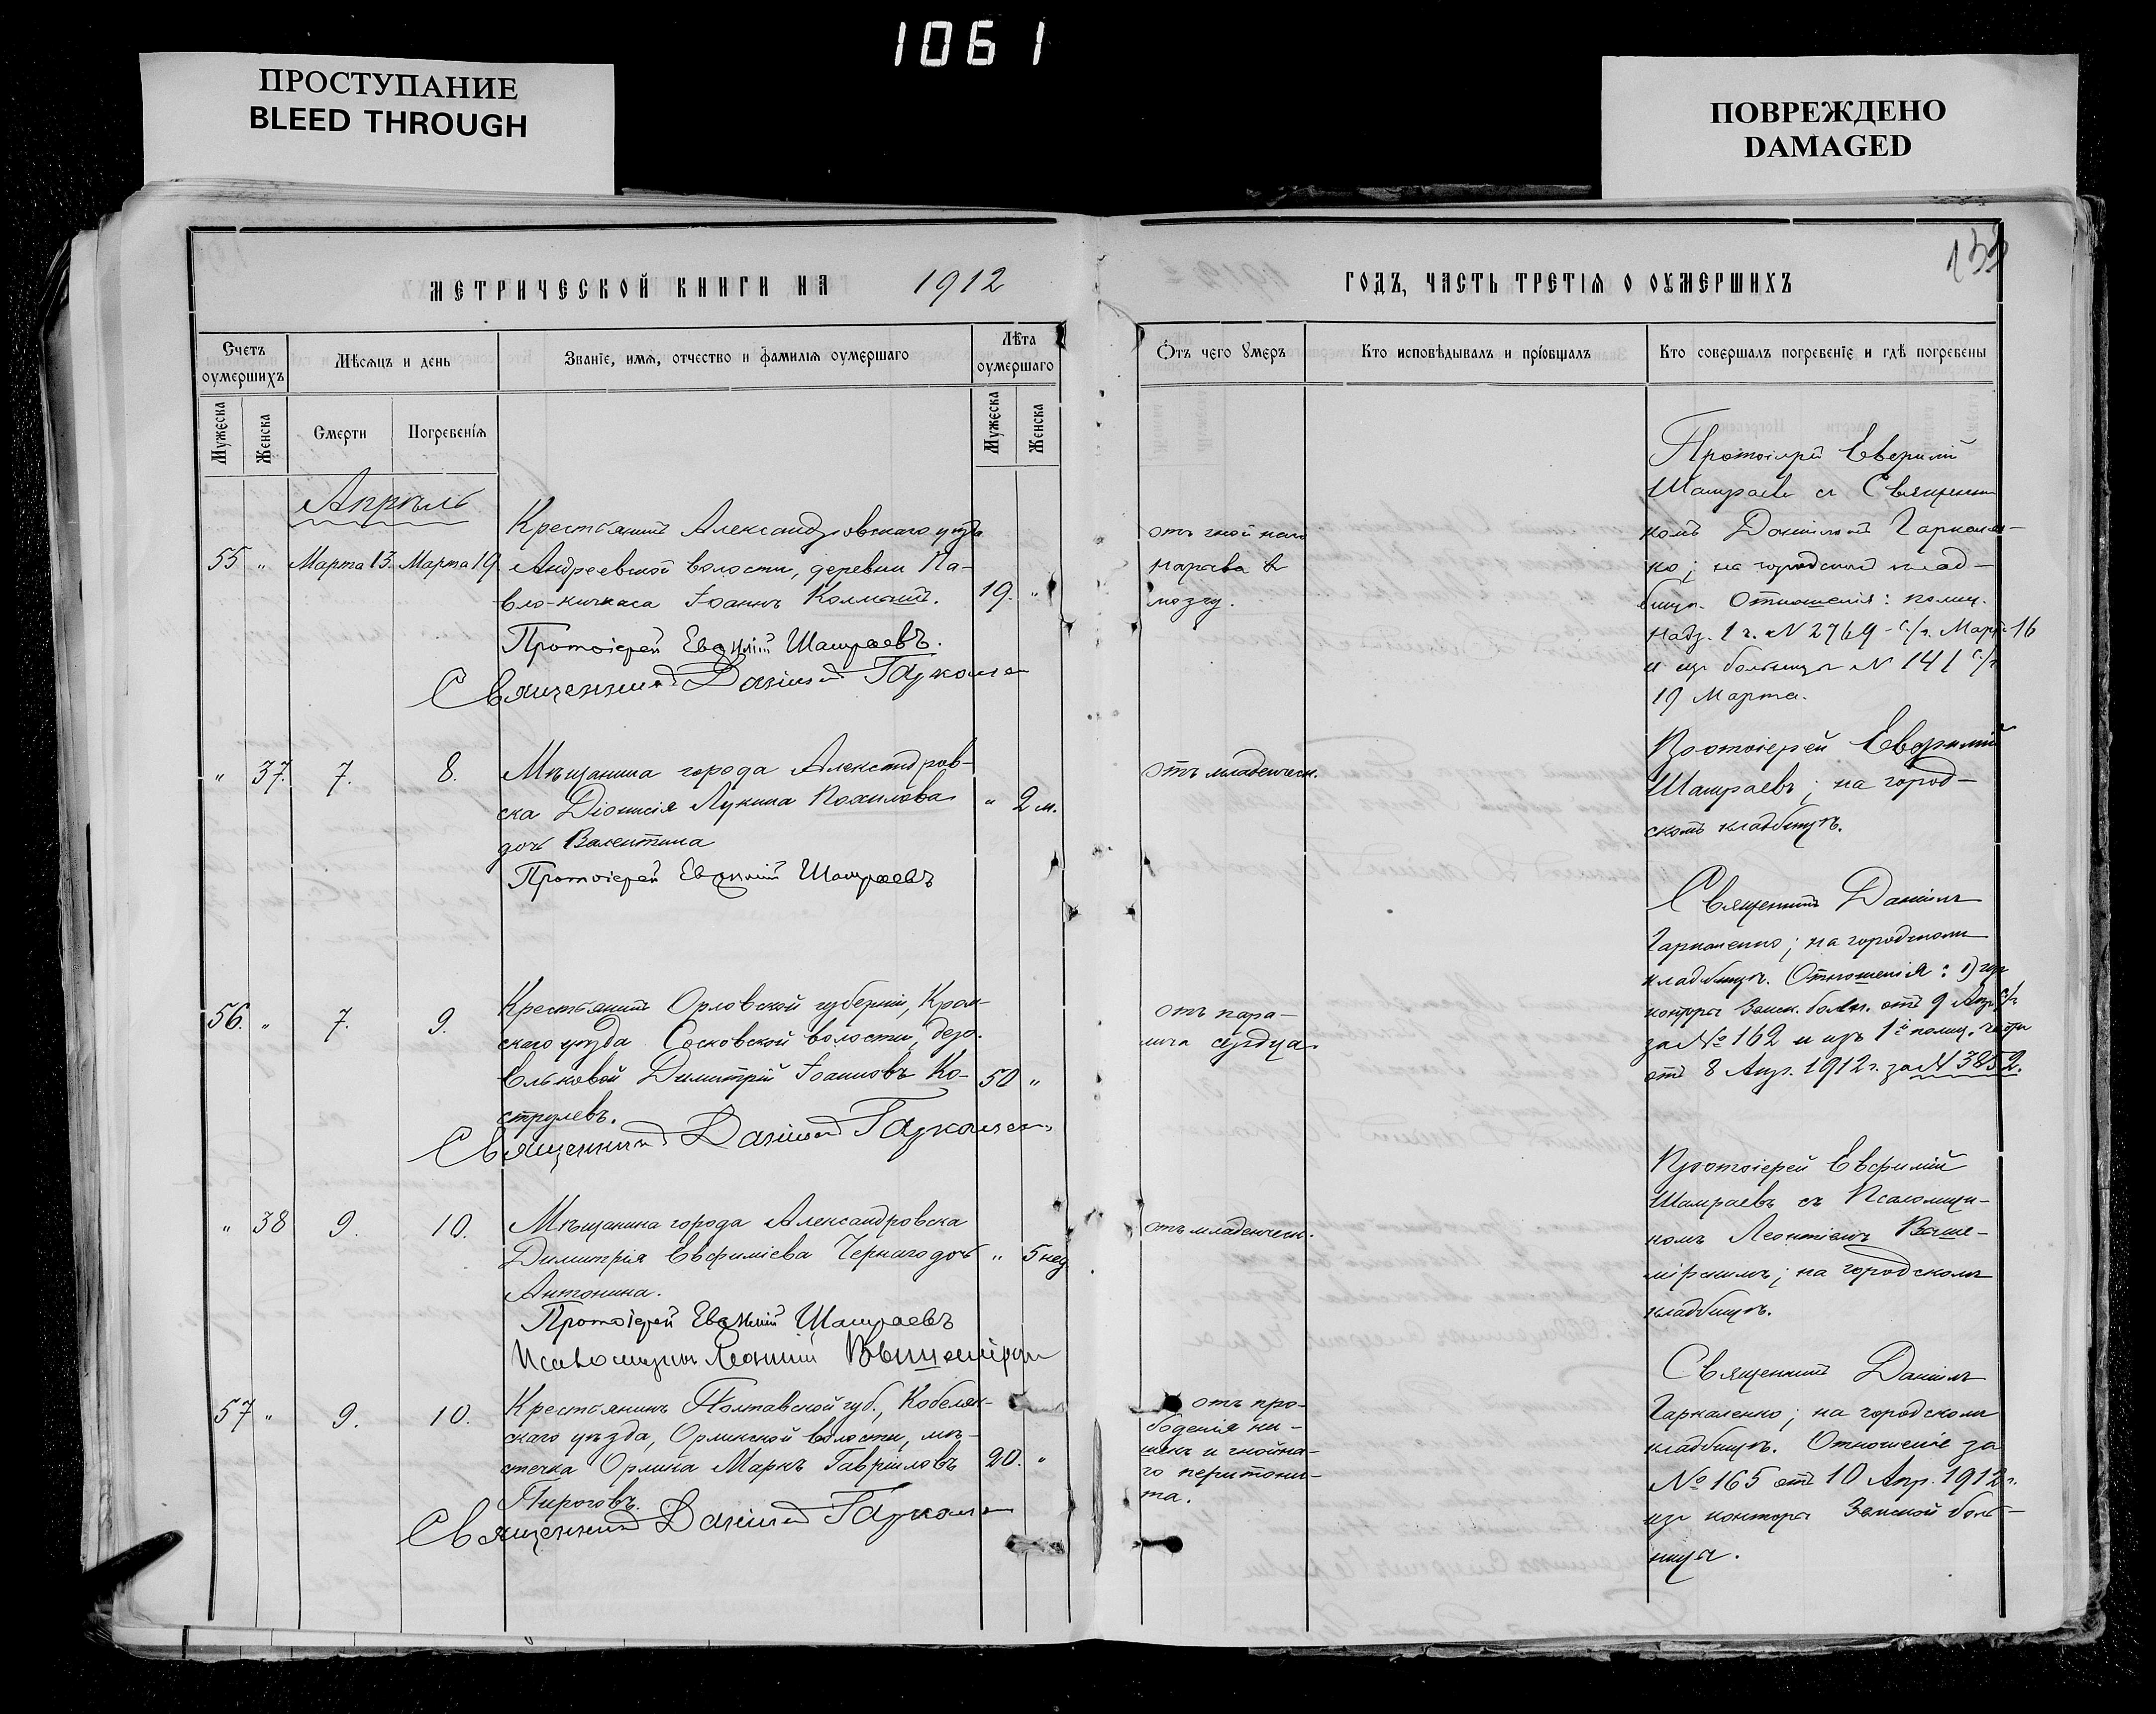 1061
ПРОСТУПАНИЕ
BLEED THROUGH
ПОВРЕЖДЕНО
DAMAGED
133
МЕТРИЧЕСКОЙ КНИГИ НА 1912
ГОДЪ, ЧАСТЬ ТРЕТІѦ О ОУМЕРШИХЪ
Счетъ оумершихъ
Мѣсѧцъ и день
Званіе, имѧ, отчество и фамиліѧ оумершаго
Лѣта оумершаго
Отъ чего умеръ
Кто исповѣдывалъ и пріобщалъ
Кто совершалъ погребеніе и гдѣ погребены
Мужеска
Женска
Смерти
Погребеніѧ
Мужеска
Женска
Апрѣль
55 " Марта 13. Марта 19
Крестьянинъ Александровскаго уѣзда
Андреевской волости, деревни Па-
вло-кичкаса Іоаннъ Колмацъ.
19. "
Протоіерей Евѳимій Шамраевъ.
Священникъ Даніилъ Гаркале
отъ гнойнаго
нарыва въ
мозгу.
Протоіерей Евфимій
Шамраевъ съ Священни
комъ Даніиломъ Гаркален-
ко; на городскомъ клад-
бищѣ. Отношенія: полиц.
Надз. 1 ч. № 2769 - с/г. Марта 16
и изъ больницы № 141 с/г
19 Марта.
" 37. 7. 8.
Мѣщанина города Александров-
ска Діонисія Лукина Похилова
дочь Валентина
" 2 м.
Протоіерей Евѳимій Шамраевъ
отъ младенческ.
Протоіерей Евфимій
Шамраевъ; на город-
скомъ кладбищѣ.
56. " 7. 9.
Крестьянинъ Орловской губерніи, Кром-
скаго уѣзда Сосковской волости, дер.
Вльковой Димитрій Іоанновъ Ко-
струлевъ.
50 "
Священникъ Даніилъ Гаркален
отъ пара-
лича сердца.
Священникъ Даніилъ
Гаркаленко; на городскомъ
кладбищѣ. Отношенія: 1) изъ
конторы Земск. больн. отъ 9 Апр. с/г
за № 162 и изъ 1й полиц. части
отъ 8 Апр. 1912 г. за № 3852.
" 38 9. 10.
Мѣщанина города Александровска
Димитрія Евфиміева Чернаго дочь
Антонина.
" 5 нед
Протоіерей Евѳимій Шамраевъ
Псаломщикъ Леонтій Вышемірскі
отъ младенческ.
Протоіерей Евфимій
Шамраевъ съ Псаломщи-
комъ Леонтіемъ Выше-
мірскимъ; на городскомъ
кладбищѣ.
57 " 9. 10.
Крестьянинъ Полтавской губ., Кобеляк-
скаго уѣзда, Орликской волости, мѣ-
стечка Орлика Маркъ Гавріиловъ
Пироговъ.
20. "
Священникъ Даніилъ Гаркале
отъ про-
боденія ки-
шекъ и гнойна-
го перитони-
та.
Священникъ Даніилъ
Гаркаленко; на городскомъ
кладбищѣ. Отношеніе за
№ 165 отъ 10 Апр. 1912 г.
изъ конторы Земской боль-
ницы.